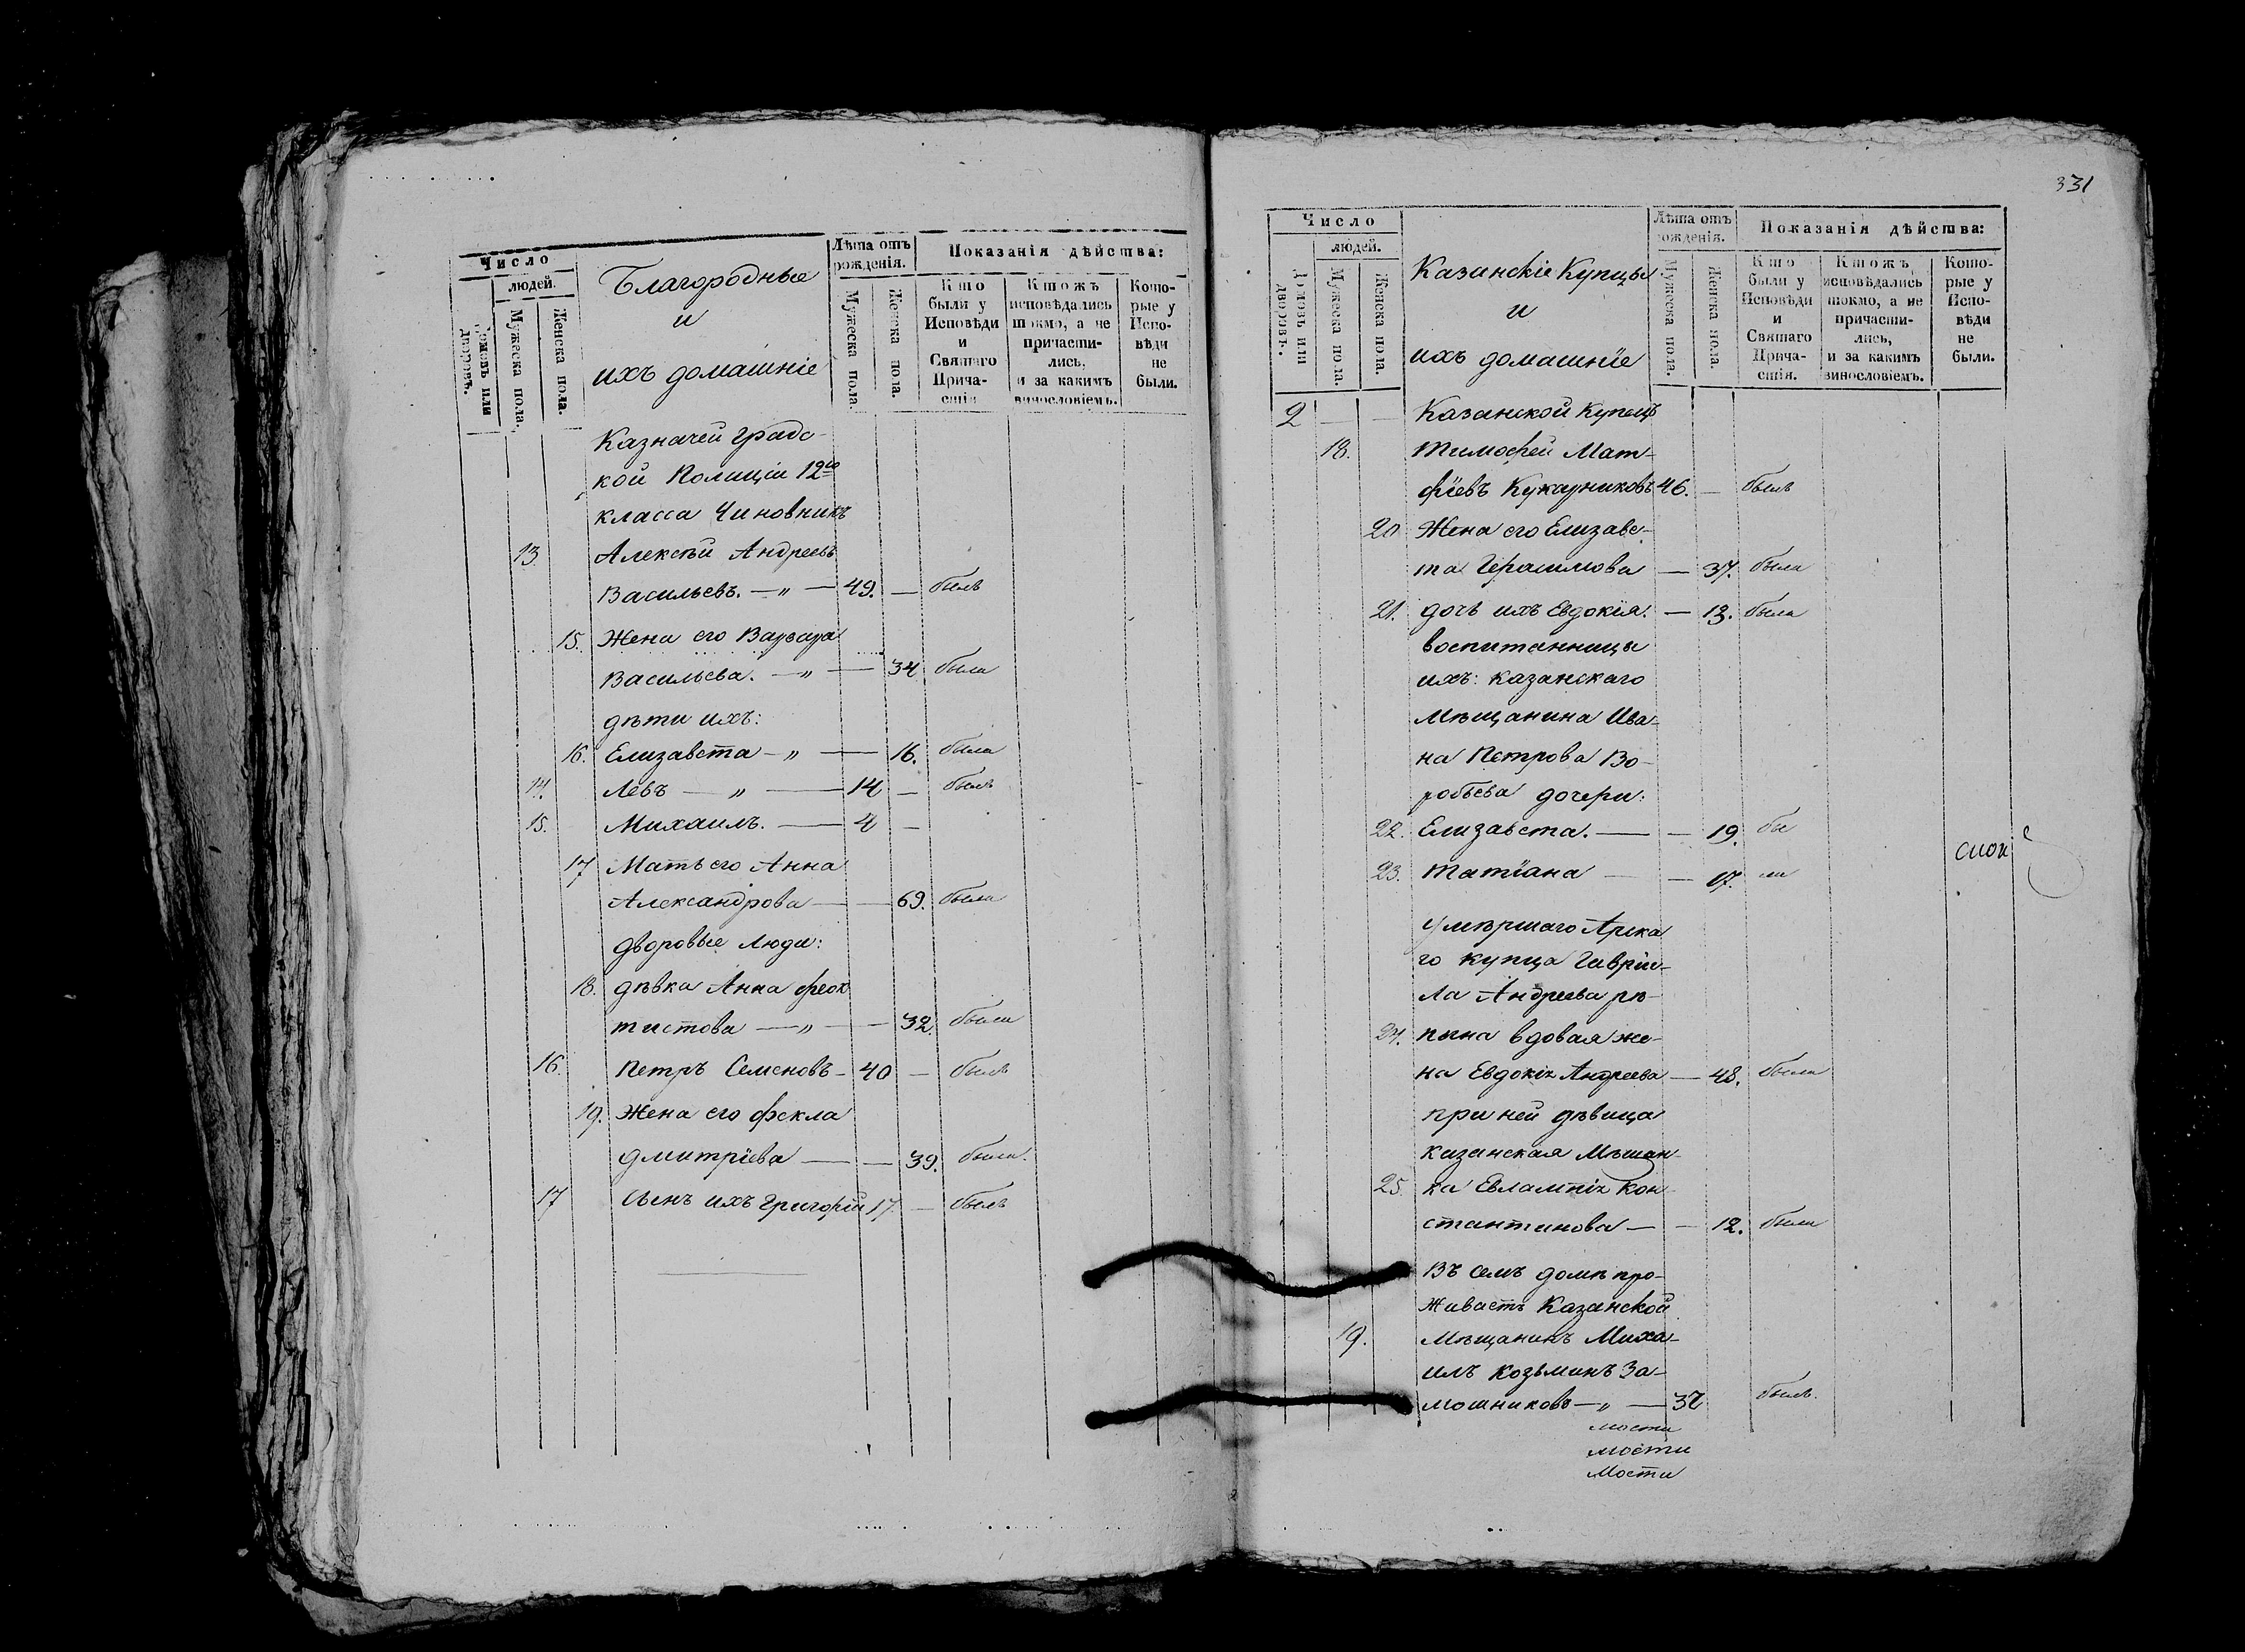 Число
людей.
Домовъ или дворовъ.
Мужеска пола.
Женска пола.
Благородные
и
ихъ домашніе
Лѣта отъ рожденія.
Мужеска пола.
Женска пола.
Показанія дѣйства:
Кто были у Исповѣди и Святаго Причастія
Ктожъ исповѣдались токмо, а не причастились, и за какимъ винословіемъ.
Которые у Исповѣди не были.
Казначей градс-
кой Полиціи 12го
класса Чиновникъ
13 Алексѣй Андреевъ
Васильевъ. — „ — 49. — былъ
15. Жена его Варвара
Васильева. — „ — 34 была
дѣти ихъ:
16. Елизавета — „ — 16. была
14. Левъ — „ — 14 — былъ
15. Михаилъ. — 4 —
17 Мать его Анна
Александрова — — 69. была
дворовые люди:
18. дѣвка Анна Феок
тистова — „ — 32. была
16. Петръ Семеновъ — 40 — былъ
19. Жена его Фекла
Дмитріева — — 39. была.
17 Сынъ ихъ Григорій 17. — былъ
331
Число
людей.
Домовъ или дворовъ.
Мужеска пола.
Женска пола.
Казанскіе Купцы
и
ихъ домашніе
Лѣта отъ рожденія.
Мужеска пола.
Женска пола.
Показанія дѣйства:
Кто были у Исповѣди и Святаго Причастія.
Ктожъ исповѣдались токмо, а не причастились, и за какимъ винословіемъ.
Которые у Исповѣди не были.
2 — — Казанской Купецъ
18. Тимофей Мат-
фіевъ 46. — былъ
20 Жена его Елизаве-
та Герасимова — 37. была
21. дочь ихъ Евдокія. — 13. была
воспитанницы
ихъ: казанскаго
Мѣщанина Ива-
на Петрова Во-
робьева дочери:
22. Елизавета. — — 19. бы
23. Татіана — — 17. ли
Умершаго
го купца Гаврии-
ла Андреева рѣ-
24. пына вдовая же-
на Евдокія Андреева — 48. была
при ней дѣвица
казанская Мѣщан-
25. ка Евлампія Кон
стантинова — — 12. была
Въ семъ домѣ про-
живаетъ Казанской
19. Мѣщанинъ Миха-
илъ Козьминъ За-
мошниковъ — „ — 32 былъ.
мости
мости
Мости